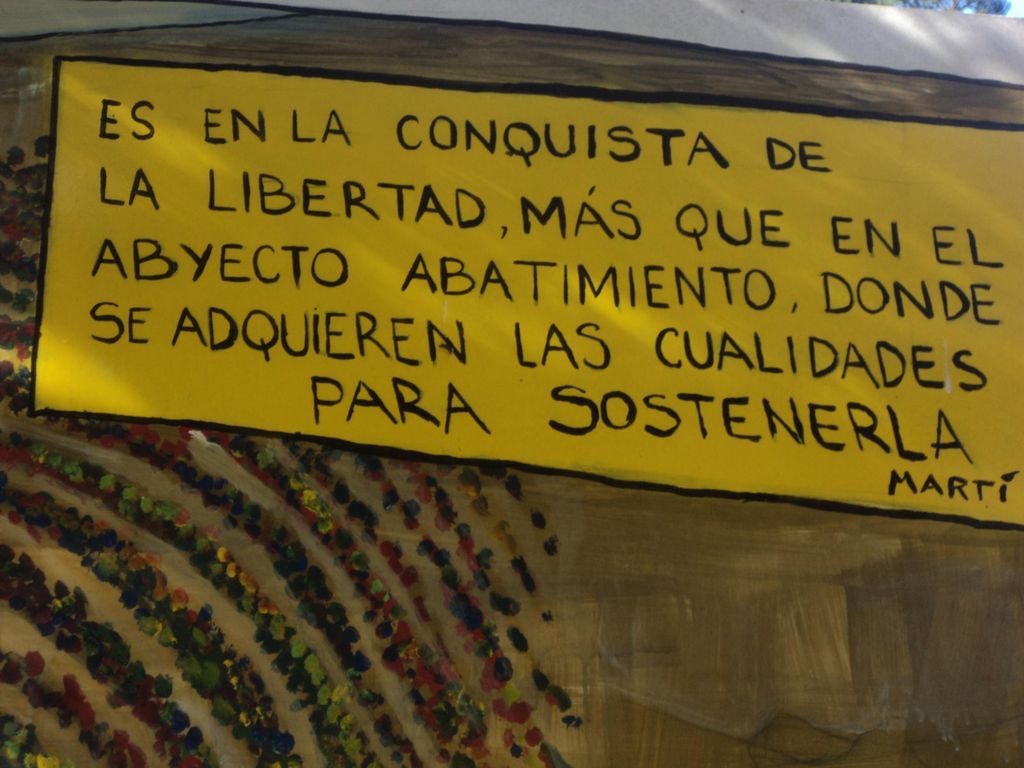 ES EN LA CONQUISTA DE
LA LIBERTAD, MÁS QUE EN EL
ABYECTO ABATIMIENTO, DONDE
SE ADQUIEREN LAS CUALIDADES
PARA SOSTENERLA
MARTÍ